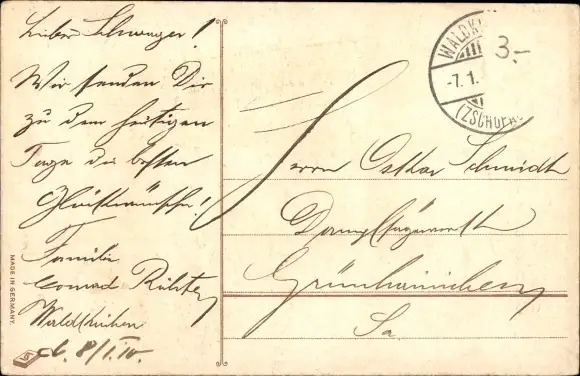 Lieber Schwager!
Wir senden Dir
zu dem heutigen
Tage die besten
Glückwünsche!
Familie
Conrad Richter
Waldkirchen
d. 8/1.10.
MADE IN GERMANY.
WALDK
-7.1.
(ZSCHOPA
3.-
Herrn Oskar Schmidt
Dampfsägewerk
Grünhainichen
Sa.